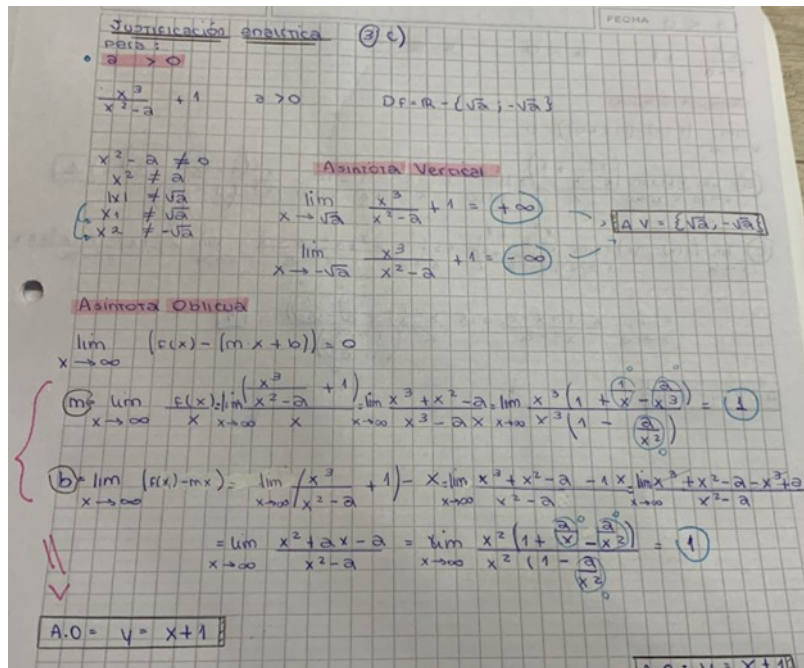 FECHA
Justificación analítica ③ c)
para:
• a > 0
x³/(x²-a) + 1 a > 0 Df = R - {√a ; -√a}
x² - a ≠ 0
x² ≠ a
|x| ≠ √a
x1 ≠ √a
x2 ≠ -√a
Asintota Vertical
lim x→√a x³/(x²-a) + 1 = +∞
lim x→-√a x³/(x²-a) + 1 = -∞
A V = {√a, -√a}
Asintota Oblicua
lim x→∞ (f(x) - (m·x + b)) = 0
m = lim x→∞ f(x)/x = lim x→∞ (x³/(x²-a) + 1)/x = lim x→∞ (x³ + x² - a)/(x³ - ax) = lim x→∞ x³(1 + 1/x - a/x³)/x³(1 - a/x²) = 1
b = lim x→∞ (f(x) - mx) = lim x→∞ (x³/(x²-a) + 1) - x = lim x→∞ (x³ + x² - a - 1x)/(x² - a) = lim x→∞ (x³ + x² - a - x³ + a)/(x² - a)
= lim x→∞ (x² + ax - a)/(x² - a) = lim x→∞ x²(1 + a/x - a/x²)/x²(1 - a/x²) = 1
A.O = y = x + 1